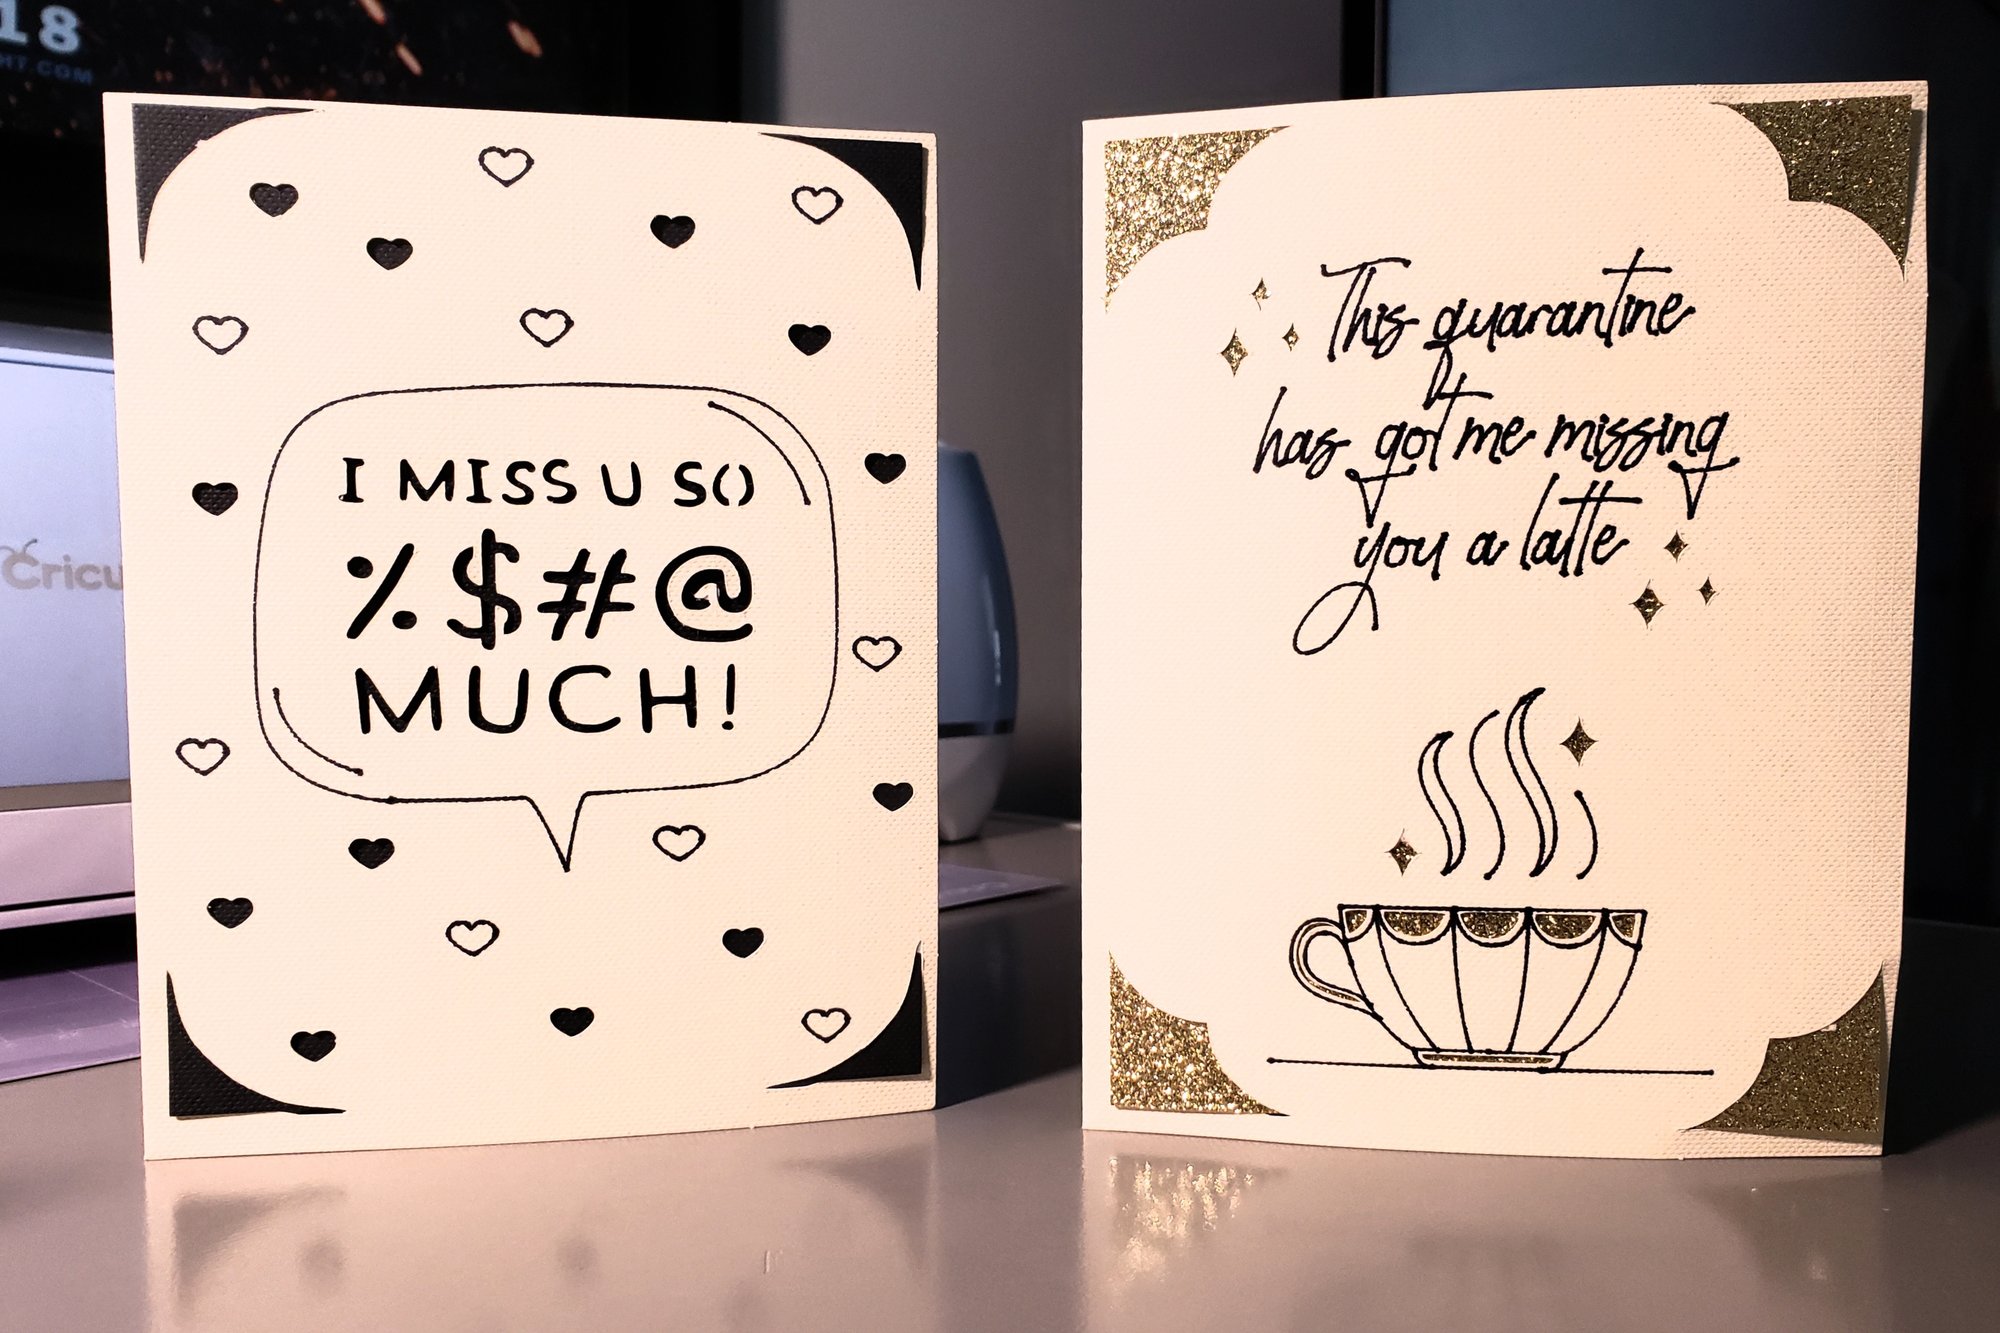 18
HT.COM
Cricu
I MISS U SO
%$#@
MUCH!
This quarantine
has got me missing
you a latte